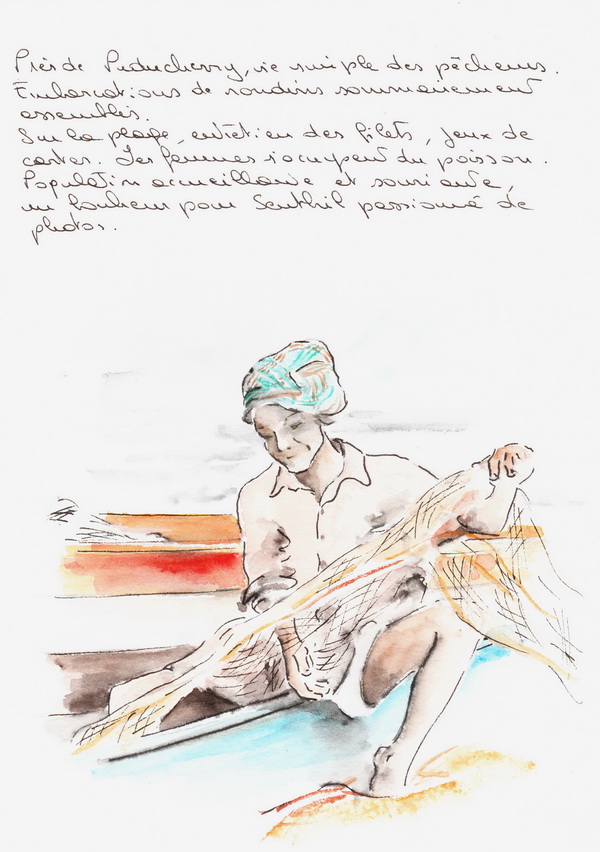 Près de Puducherry, vie simple des pêcheurs.
Embarcations de rondins sommairement
assemblés.
Sur la plage, entretien des filets, jeux de
cartes. Les femmes s'occupent du poisson.
Population accueillante et souriante,
un bonheur pour Senthil passionné de
photos.